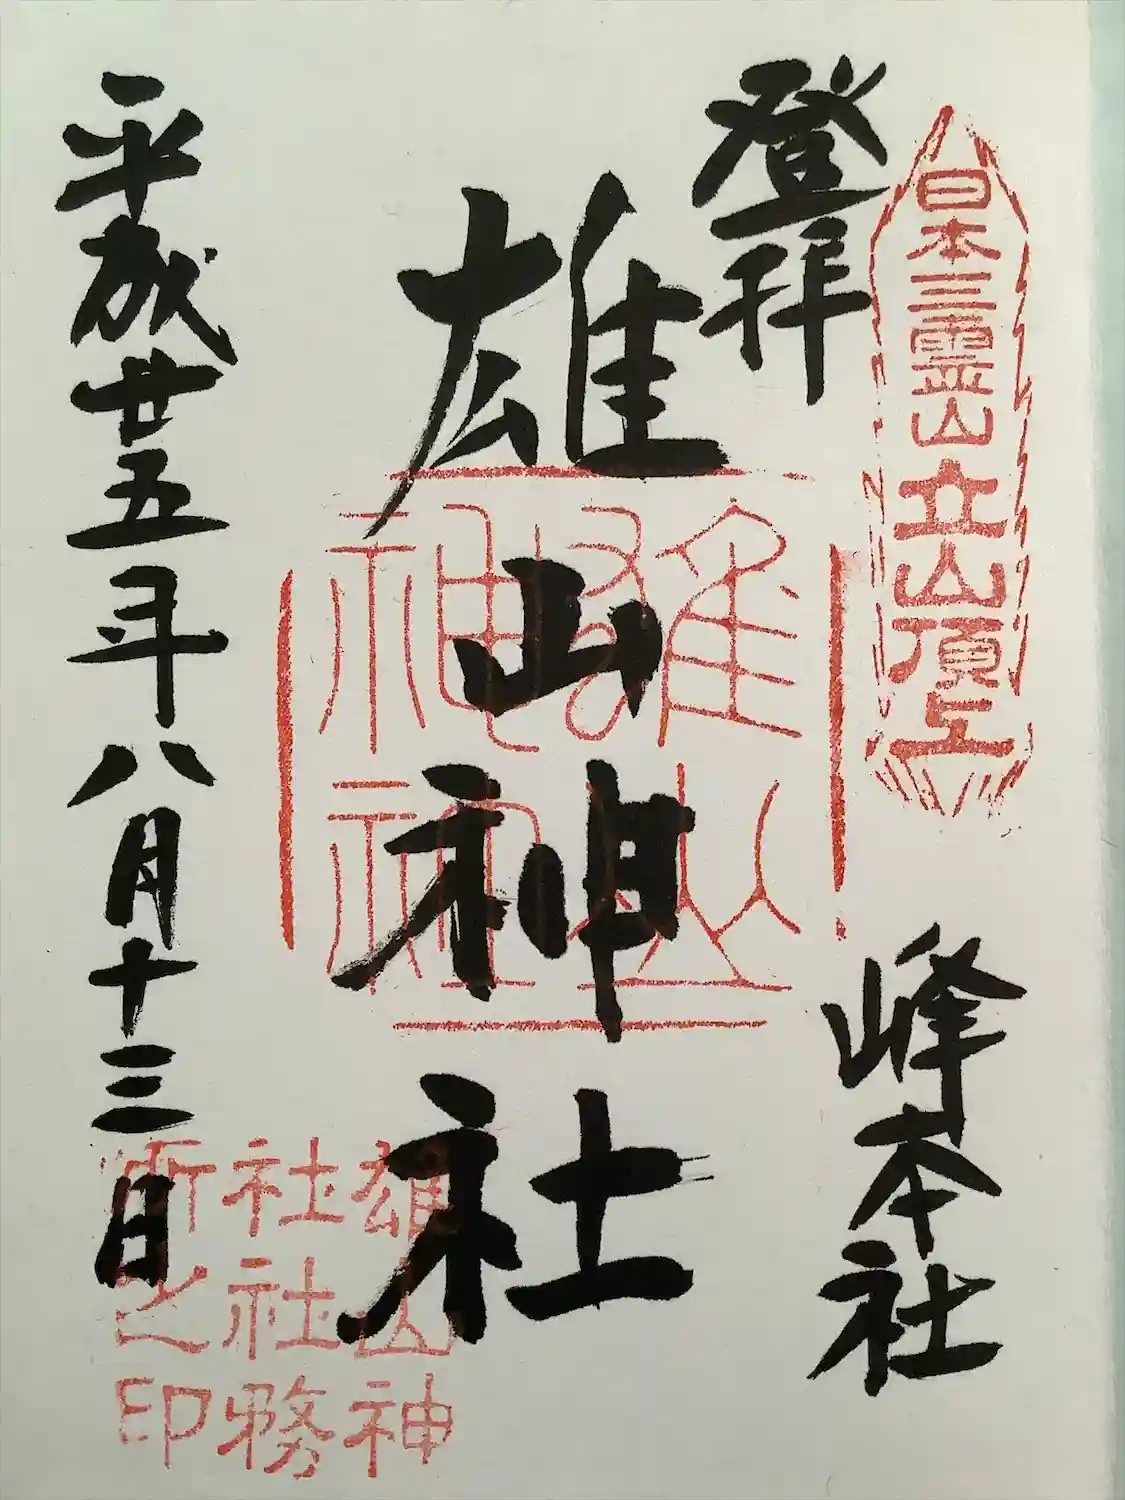 日本三霊山立山頂上
登拝
峰本社
雄山神社
雄山神社
雄山神
社社務
所之印
平成廿五年八月十三日